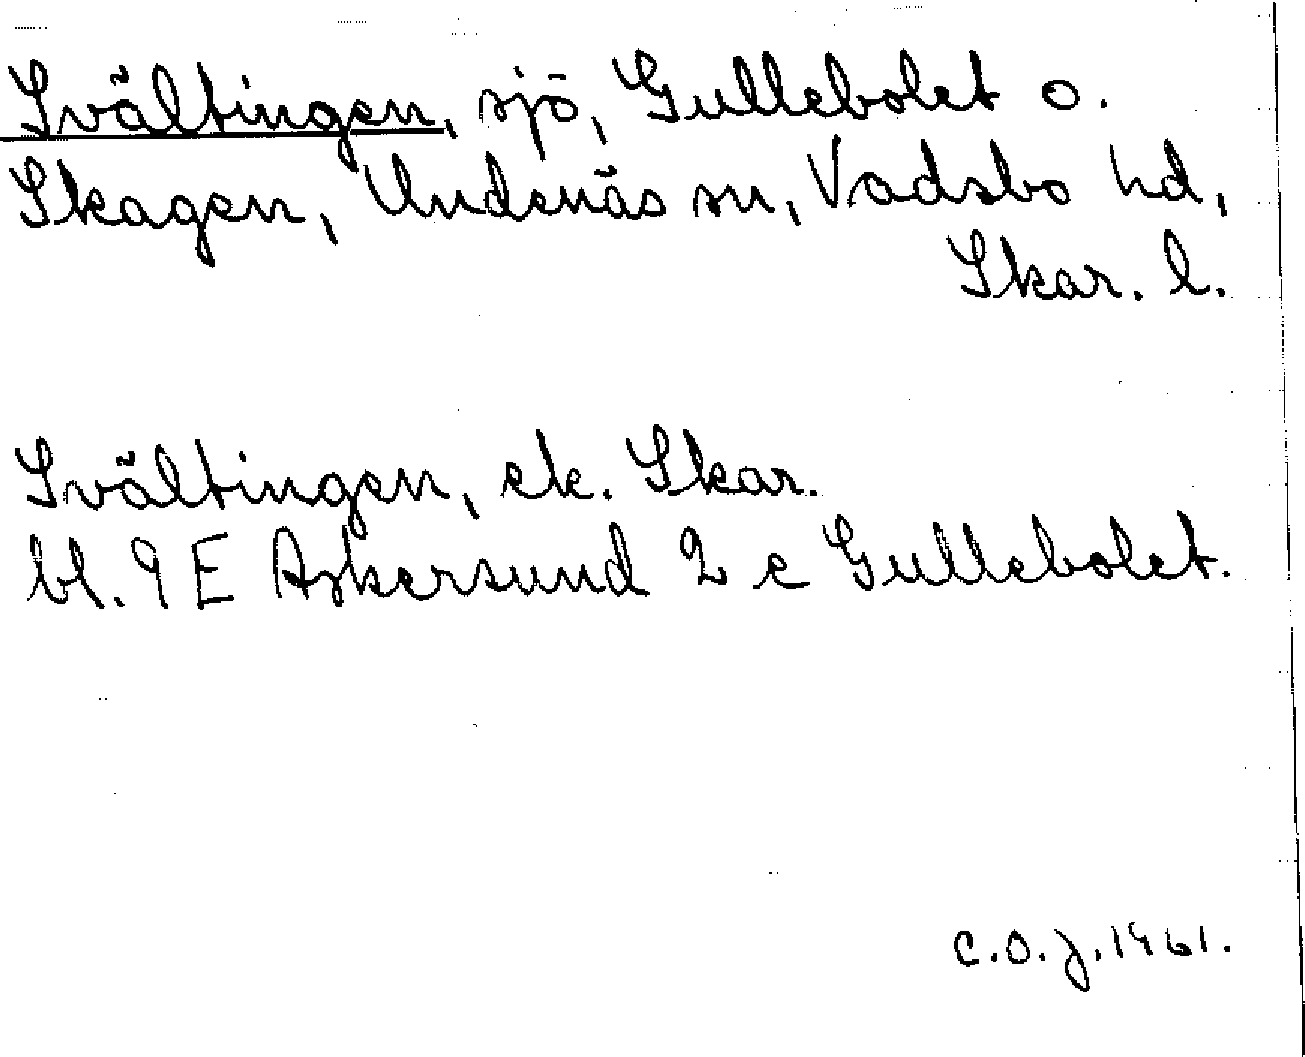 Svältingen, sjö, Gullebolet o.
Skagen, Undenäs sn, Vadsbo hd,
Skar. l.
Svältingen, ek. Skar.
bl. 9 E Askersund 2 c Gullebolet.
C.O.J. 1961.